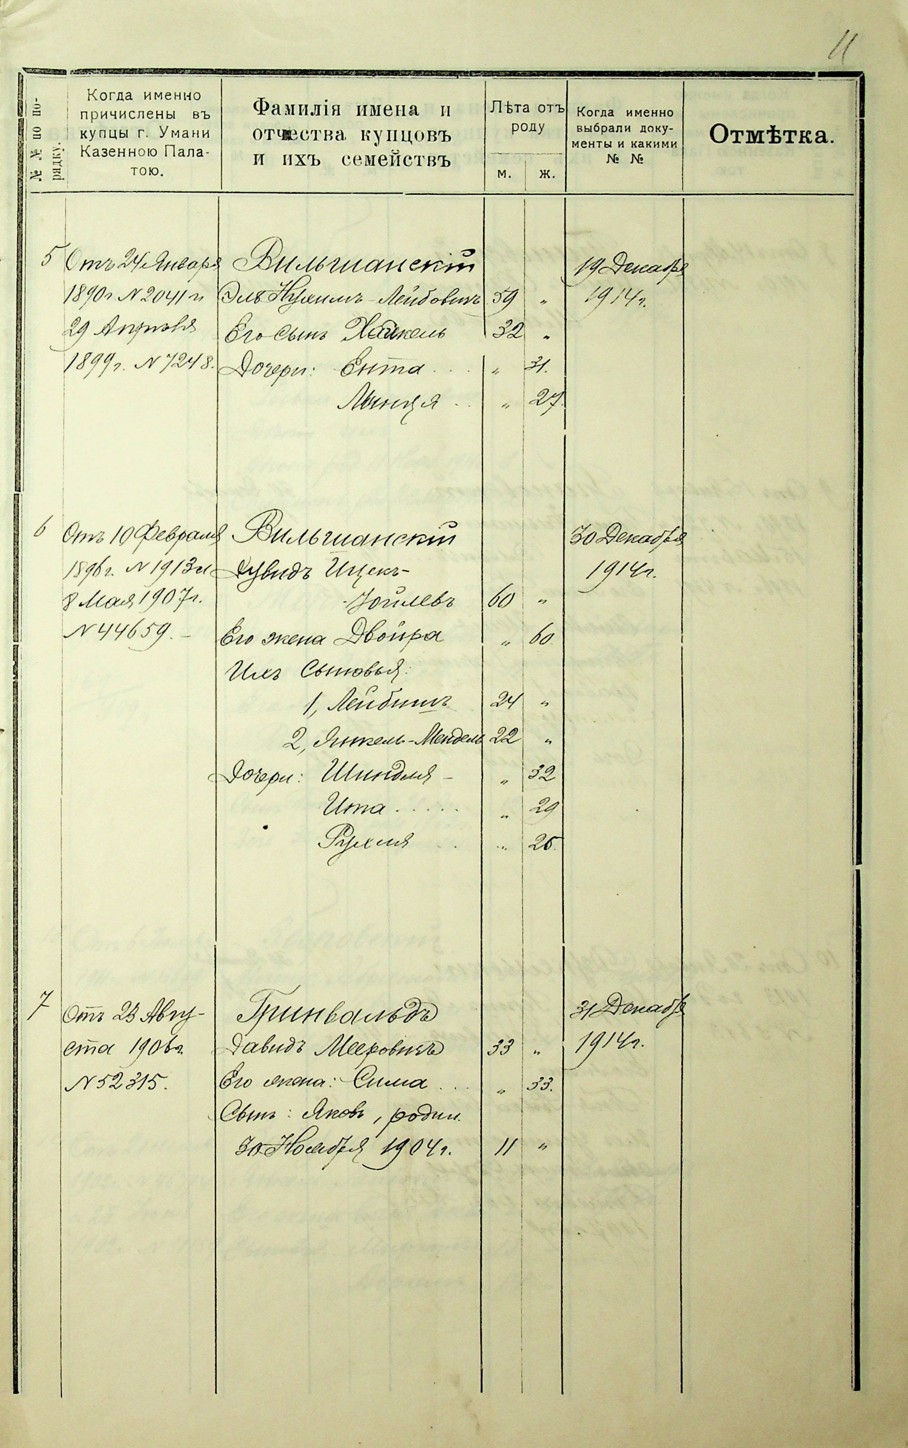 11
№ № по по-
рядку.
Когда именно
причислены въ
купцы г. Умани
Казенною Пала-
тою.
Фамилія имена и
отчества купцовъ
и ихъ семействъ
Лѣта отъ
роду
м.
ж.
Когда именно
выбрали доку-
менты и какими
№ №
Отмѣтка.
5 Отъ 24 Января Вильшанскій 19 Декабря
1890 г. № 2041 и Эль Нухимъ - Лейбовичъ 59 " 1914 г.
29 Апрѣля Его сынъ Хайкель 32 "
1899 г. № 7248. Дочери: Ента . . . " 31.
Манця . . " 27.
6 Отъ 10 Февраля Вильшанскій 30 Декабря
1896 г. № 1913 и Дувидъ Ицек- 1914 г.
8 Мая 1907 г. -Зойлевъ 60 "
№ 44659. - Его жена Двойра " 60.
Ихъ сыновья:
1, Лейбишъ 24 "
2, Янкель-Мендель 22 "
Дочери: Шиндля - " 32
Ита . . . . . " 29
Рухля . . " 25
7 Отъ 23 Авгу- Гринвальдъ 31 Декабря
ста 1906 г. Давидъ Мееровичъ 33 " 1914 г.
№ 52315. Его жена: Сима . . . " 33.
Сынъ: Яковъ, родил.
30 Ноября 1904 г. 11 "